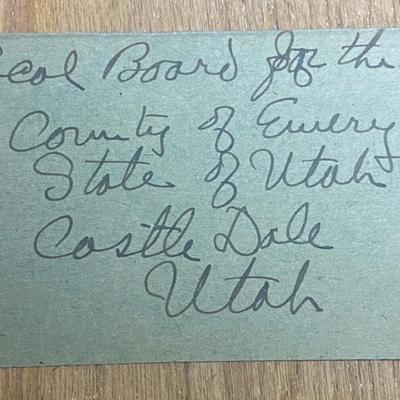 ocal Board for the
County of Emery
State of Utah
Castle Dale
Utah